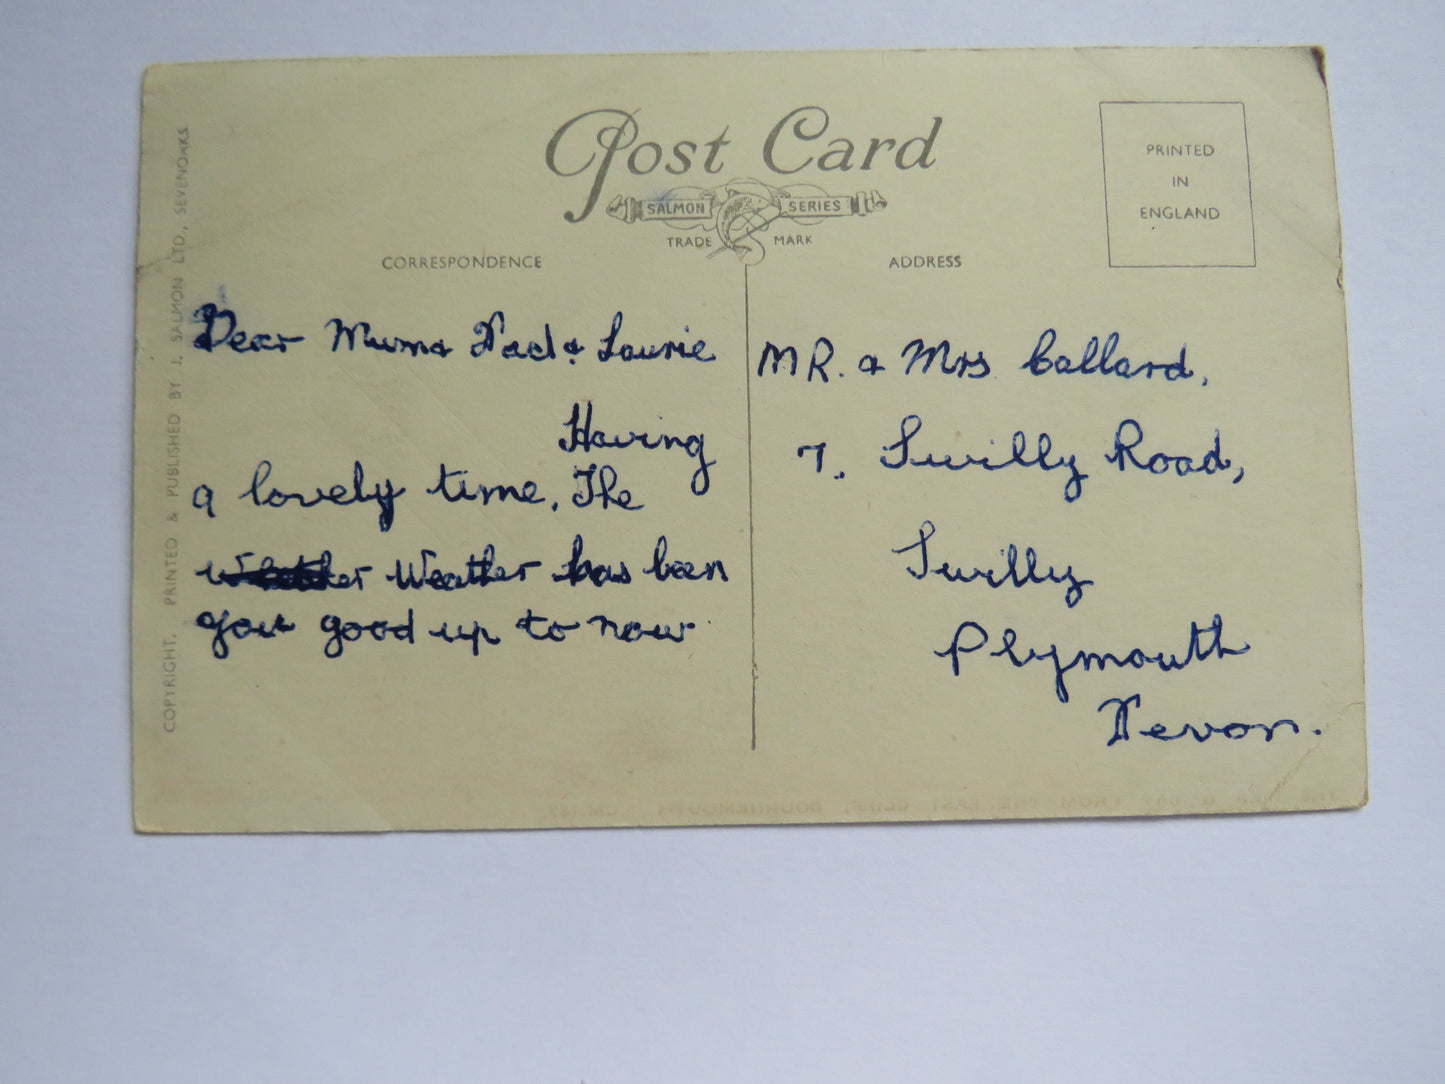 Post Card
SALMON SERIES
TRADE MARK
PRINTED
IN
ENGLAND
CORRESPONDENCE
ADDRESS
COPYRIGHT. PRINTED & PUBLISHED BY J. SALMON LTD., SEVENOAKS
Dear Mum & Dad & Laurie
Having
a lovely time, The
Weather has been
good up to now
MR. & Mrs Callard,
7. Swilly Road,
Swilly
Plymouth
Devon.